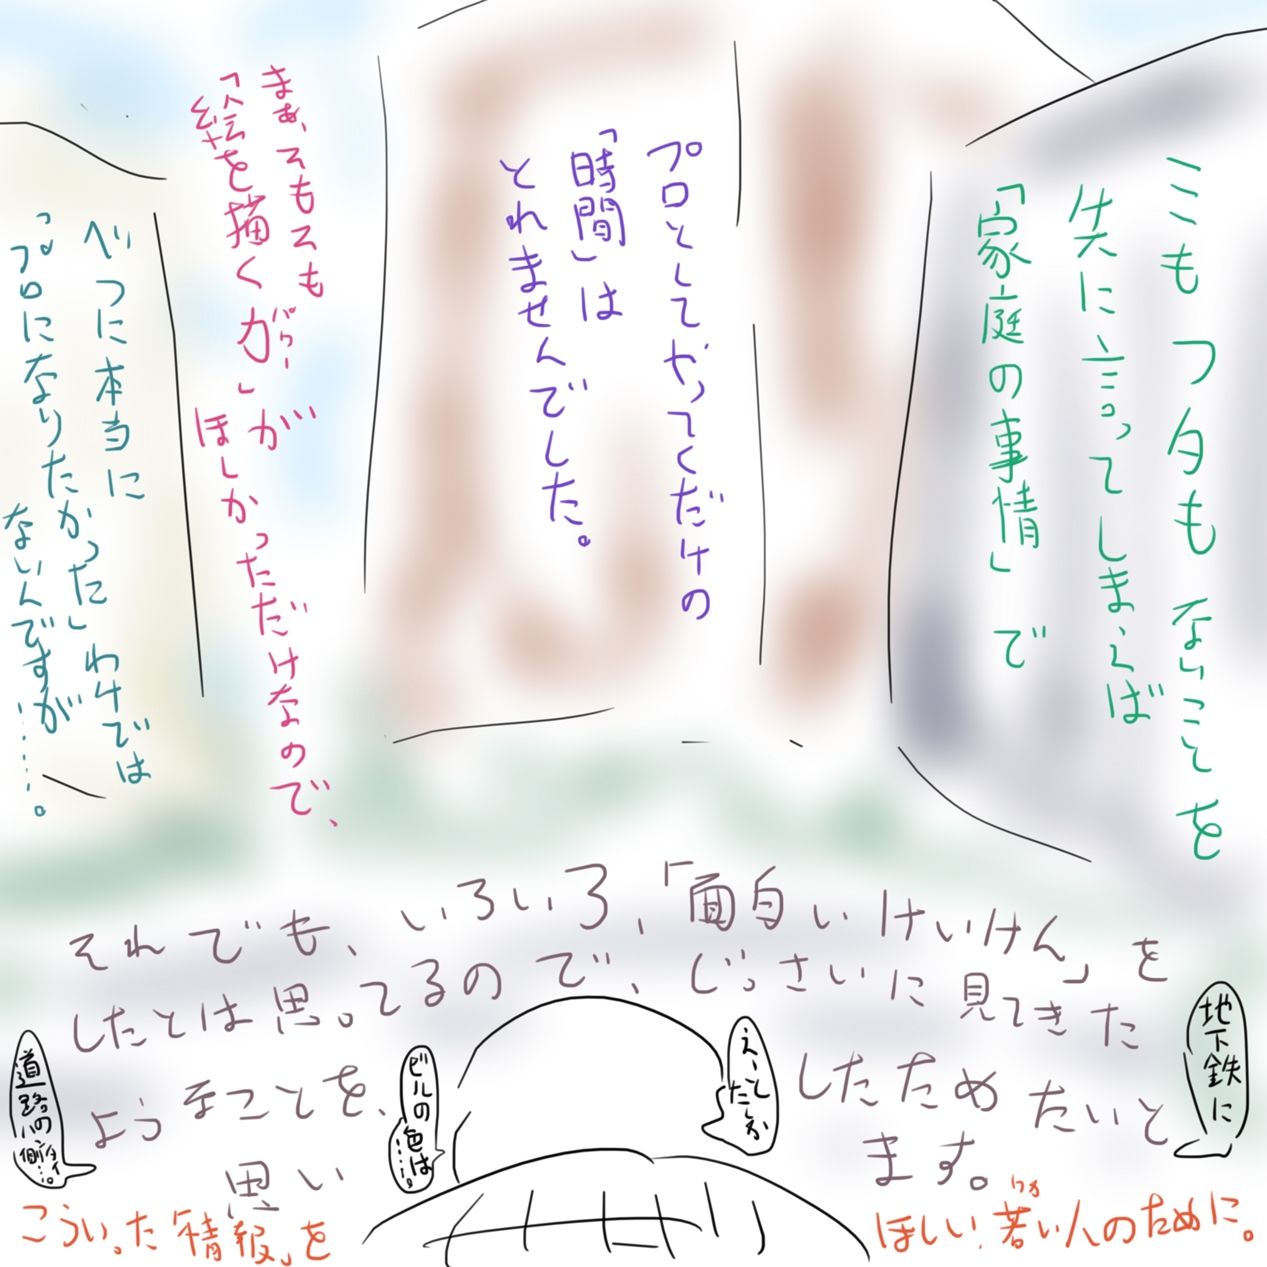 ミもフタもないことを
先に言ってしまえば
「家庭の事情」で
プロとしてやってくだけの
「時間」は
とれませんでした。
まぁ、そもそも
「絵を描く力」が
ほしかっただけなので、
べつに本当に
「プロになりたかった」わけでは
ないんですが……。
それでも、いろいろ、「面白いけいけん」を
したとは思ってるので、じっさいに見てきた
ようなことを、したためたいと
思います。
地下鉄に
えーと
たしか
ビルの
色は……。
道路の
こういった「情報」を
ほしい、若い人のために。